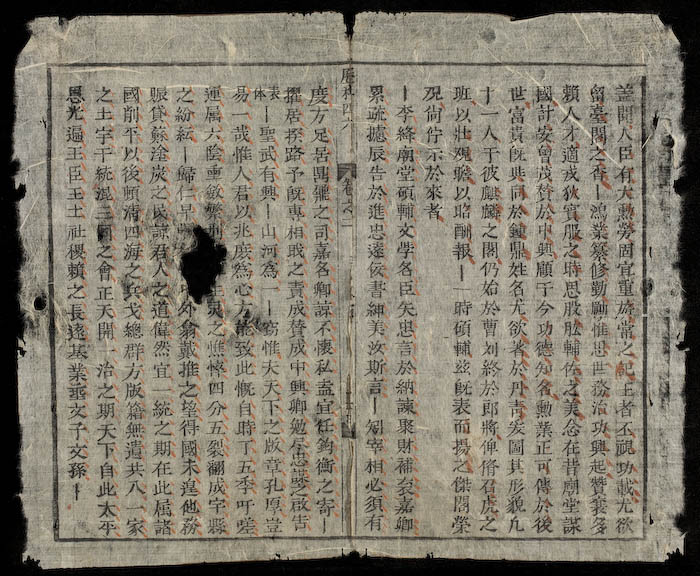 蓋聞人臣有大勳勞固宜重旂常之紀王者不視功載尤欲
留臺閣之香丨鴻業纂修勤勵惟思世務治功興起贊襄多
賴人才適戎狄賓服之時思股肱輔佐之美念在昔廟堂謀
國計安曾茂贊於中興顧于今功德知名勳業正可傳於後
世富貴旣與同於鍾鼎姓名尤欲著於丹靑爰圖其形貌凡
十一人于彼麒麟之閣仍始於曹劉終於郎將俾脩召虎之
班以壯觀瞻以昭酬報丨一時碩輔茲旣表而揚之傑閣榮
觀尙佇示於來者
丨李絳廟堂碩輔文學名臣矢忠言於納諫聚財補袞嘉卿
累疏攄辰告於進忠遠佞書紳美汝斯言丨矧宰相必須有
歷科四六
卷之二
度方足居具瞻之司嘉名卿諒不懷私盍宜任鈞衡之寄丨
擢居揆路予旣專相戢之責成贊成中興卿勉盡忠謀之啟告
表体
丨聖武有興丨山河爲一丨竊惟天下之版章孔厚豈
易一哉惟人君以兆庶爲心方能致此慨自時丁五季吁嗟
運屬六陰壷斂繁刑 生灵之憔悴四分五裂翻成宇縣
之紛紜丨歸仁早 外翁戴推之望得國未遑他務
賑貸蘇塗炭之民諒君人之道偉然宜一統之期在此属諸
國削平以後頓淸四海之兵戈總群方版籍無遺共八一家
之土宇于統混三國之會正天開一治之期天下自此太平
恩光遍王臣王土社稷賴之長遠基業垂文子文孫丨